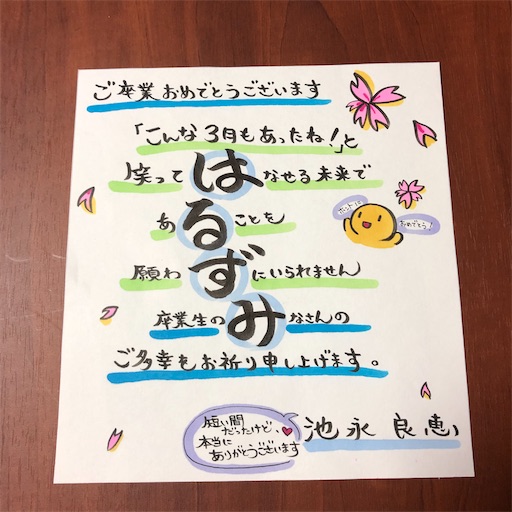 ご卒業おめでとうございます
「こんな3月もあったね!」と
笑ってはなせる未来で
あることを
願わずにいられません
卒業生のみなさんの
ご多幸をお祈り申し上げます。
おめでとう!
短い間
だったけど、
本当に
ありがとうございます
池永良恵